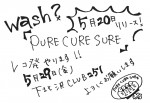 wash?
5月20日リリース!
PURE CURE SURE
レコ発やります!!
5月29日(金)
下北沢 CLUB251
よろしくお願いします